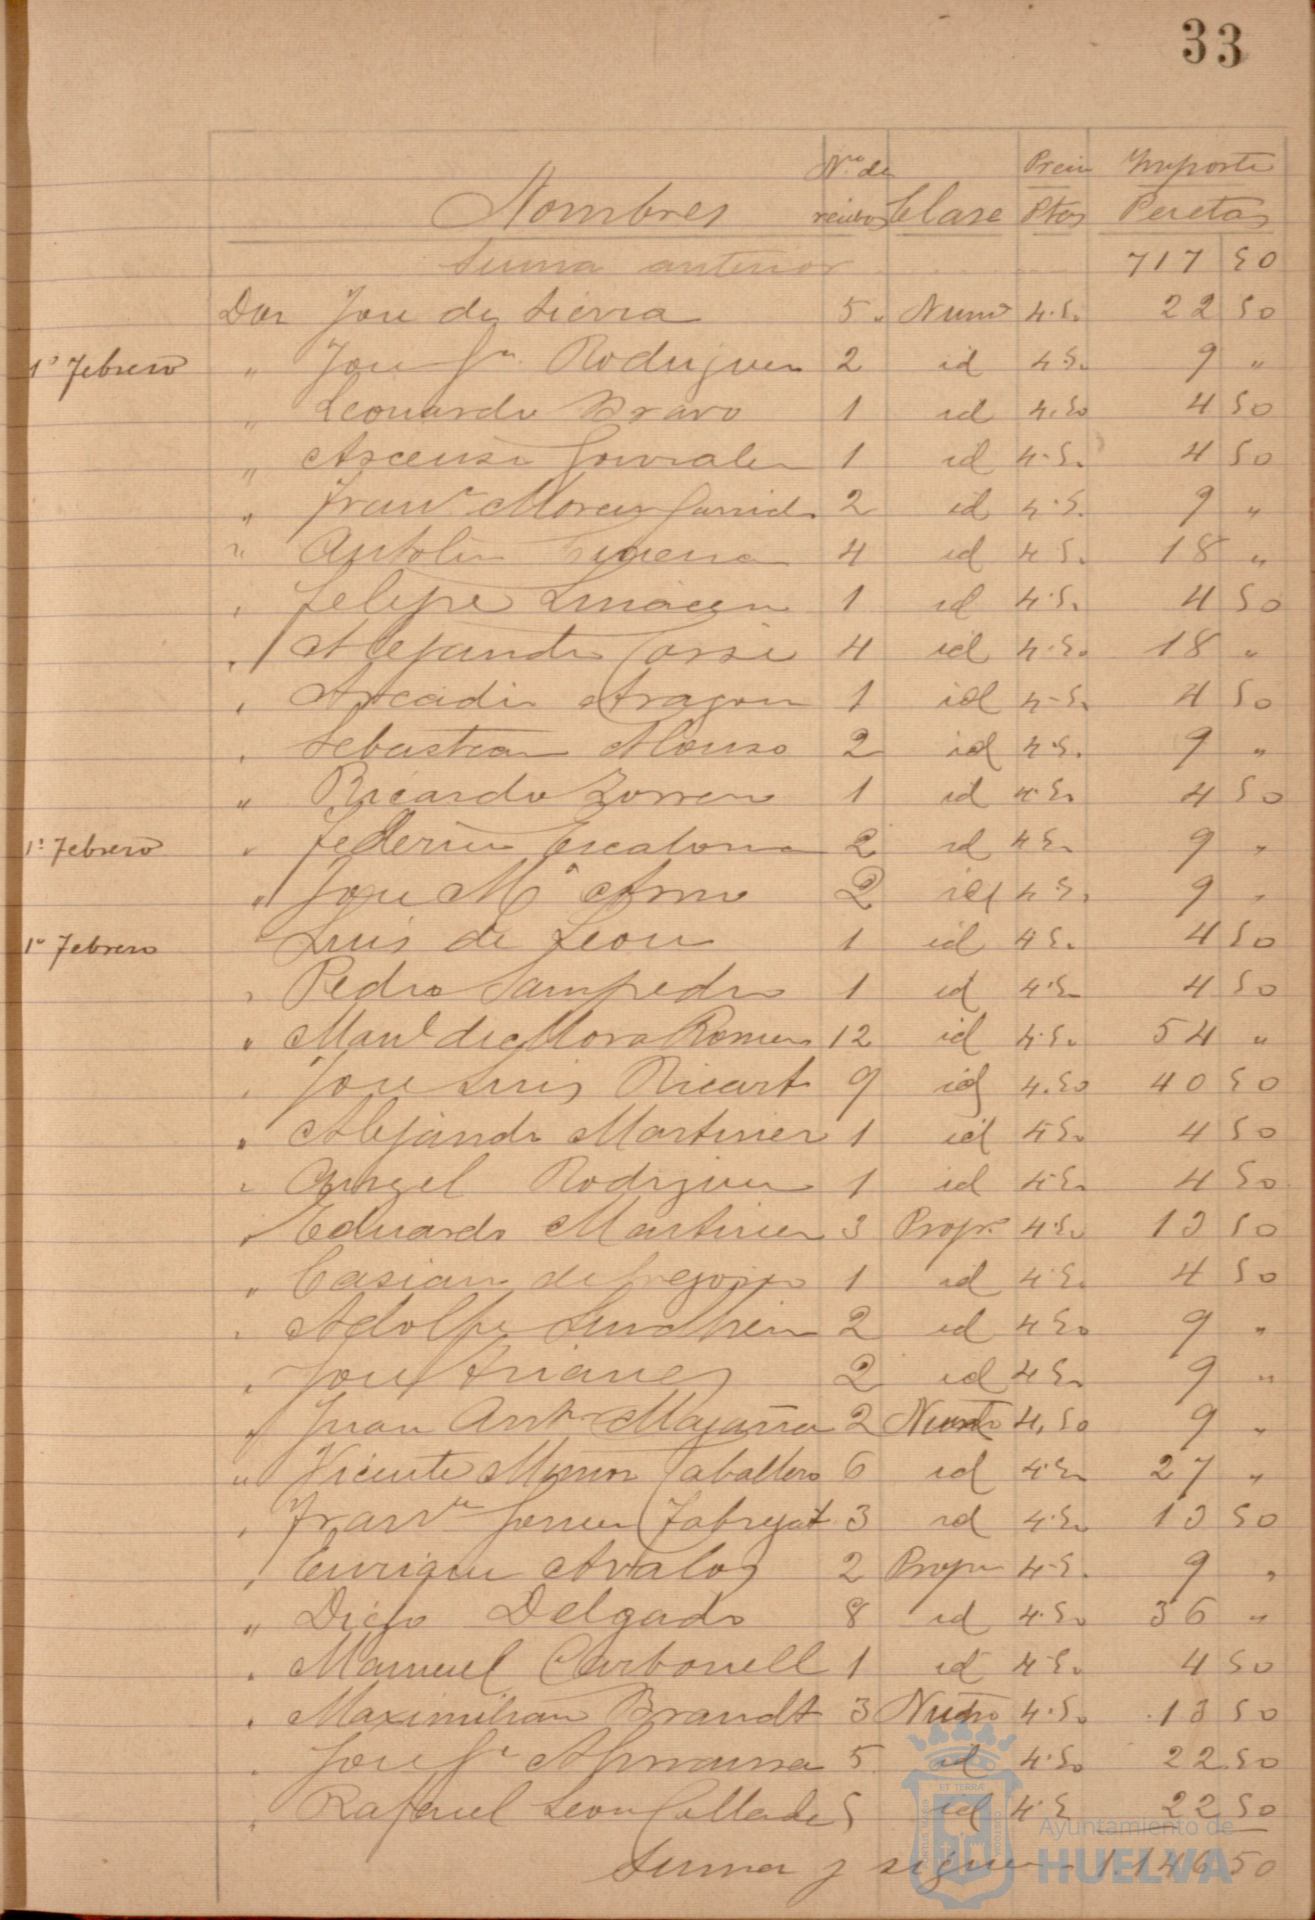 33
Nombres Nº de recibos Clase Precio Ptas Importe Pesetas
Suma anterior 717 50
Don José de Sierra 5 " Num° 4.50 22 50
1º Febrero " José Gª Rodriguez 2 id 4.50 9 "
" Leonardo Bravo 1 id 4.50 4 50
" Ascensio Gonzalez 1 id 4.50 4 50
" Franco Moreno Garrido 2 id 4.50 9 "
" Antolin 4 id 4.50 18 "
" Felipe 1 id 4.50 4 50
" Alejandro Cossi 4 id 4.50 18 "
" Arcadio Aragon 1 id 4.50 4 50
" Sebastian Alonso 2 id 4.50 9 "
" Ricardo 1 id 4.50 4 50
1º Febrero " Federico Escalona 2 id 4.50 9 "
" José Mª 2 id 4.50 9 "
1º Febrero " Luis de Leon 1 id 4.50 4 50
" Pedro Sampedro 1 id 4.50 4 50
" Manl de Mora Romero 12 id 4.50 54 "
" José Luis Ricart 9 id 4.50 40 50
" Alejandro Martinez 1 id 4.50 4 50
" Angel Rodriguez 1 id 4.50 4 50
" Eduardo Martinez 3 Propº 4.50 13 50
" Casiano de Gregorio 1 id 4.50 4 50
" Adolfo Sundheim 2 id 4.50 9 "
" José 2 id 4.50 9 "
" Juan Antº Magaña 2 Numo 4.50 9 "
" Vicente Muñoz Caballero 6 id 4.50 27 "
" Franco Gomez Fabregat 3 id 4.50 13 50
" Enrique Avalos 2 Propº 4.50 9 "
" Diego Delgado 8 id 4.50 36 "
" Manuel Carbonell 1 id 4.50 4 50
" Maximilian Brandt 3 Numo 4.50 13 50
" José Gª 5 id 4.50 22 50
" Rafael Leon Collado 5 id 4.50 22 50
Suma y sigue 1.146 50
Ayuntamiento de
HUELVA